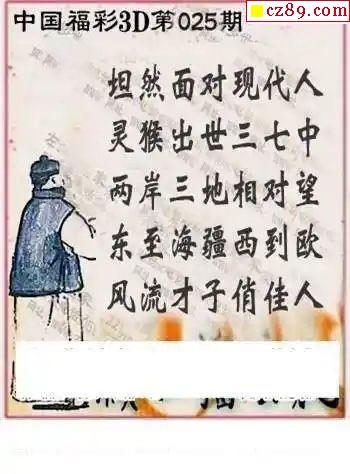 cz89.com
中国福彩3D第025期
坦然面对现代人
灵猴出世三七中
两岸三地相对望
东至海疆西到欧
风流才子俏佳人